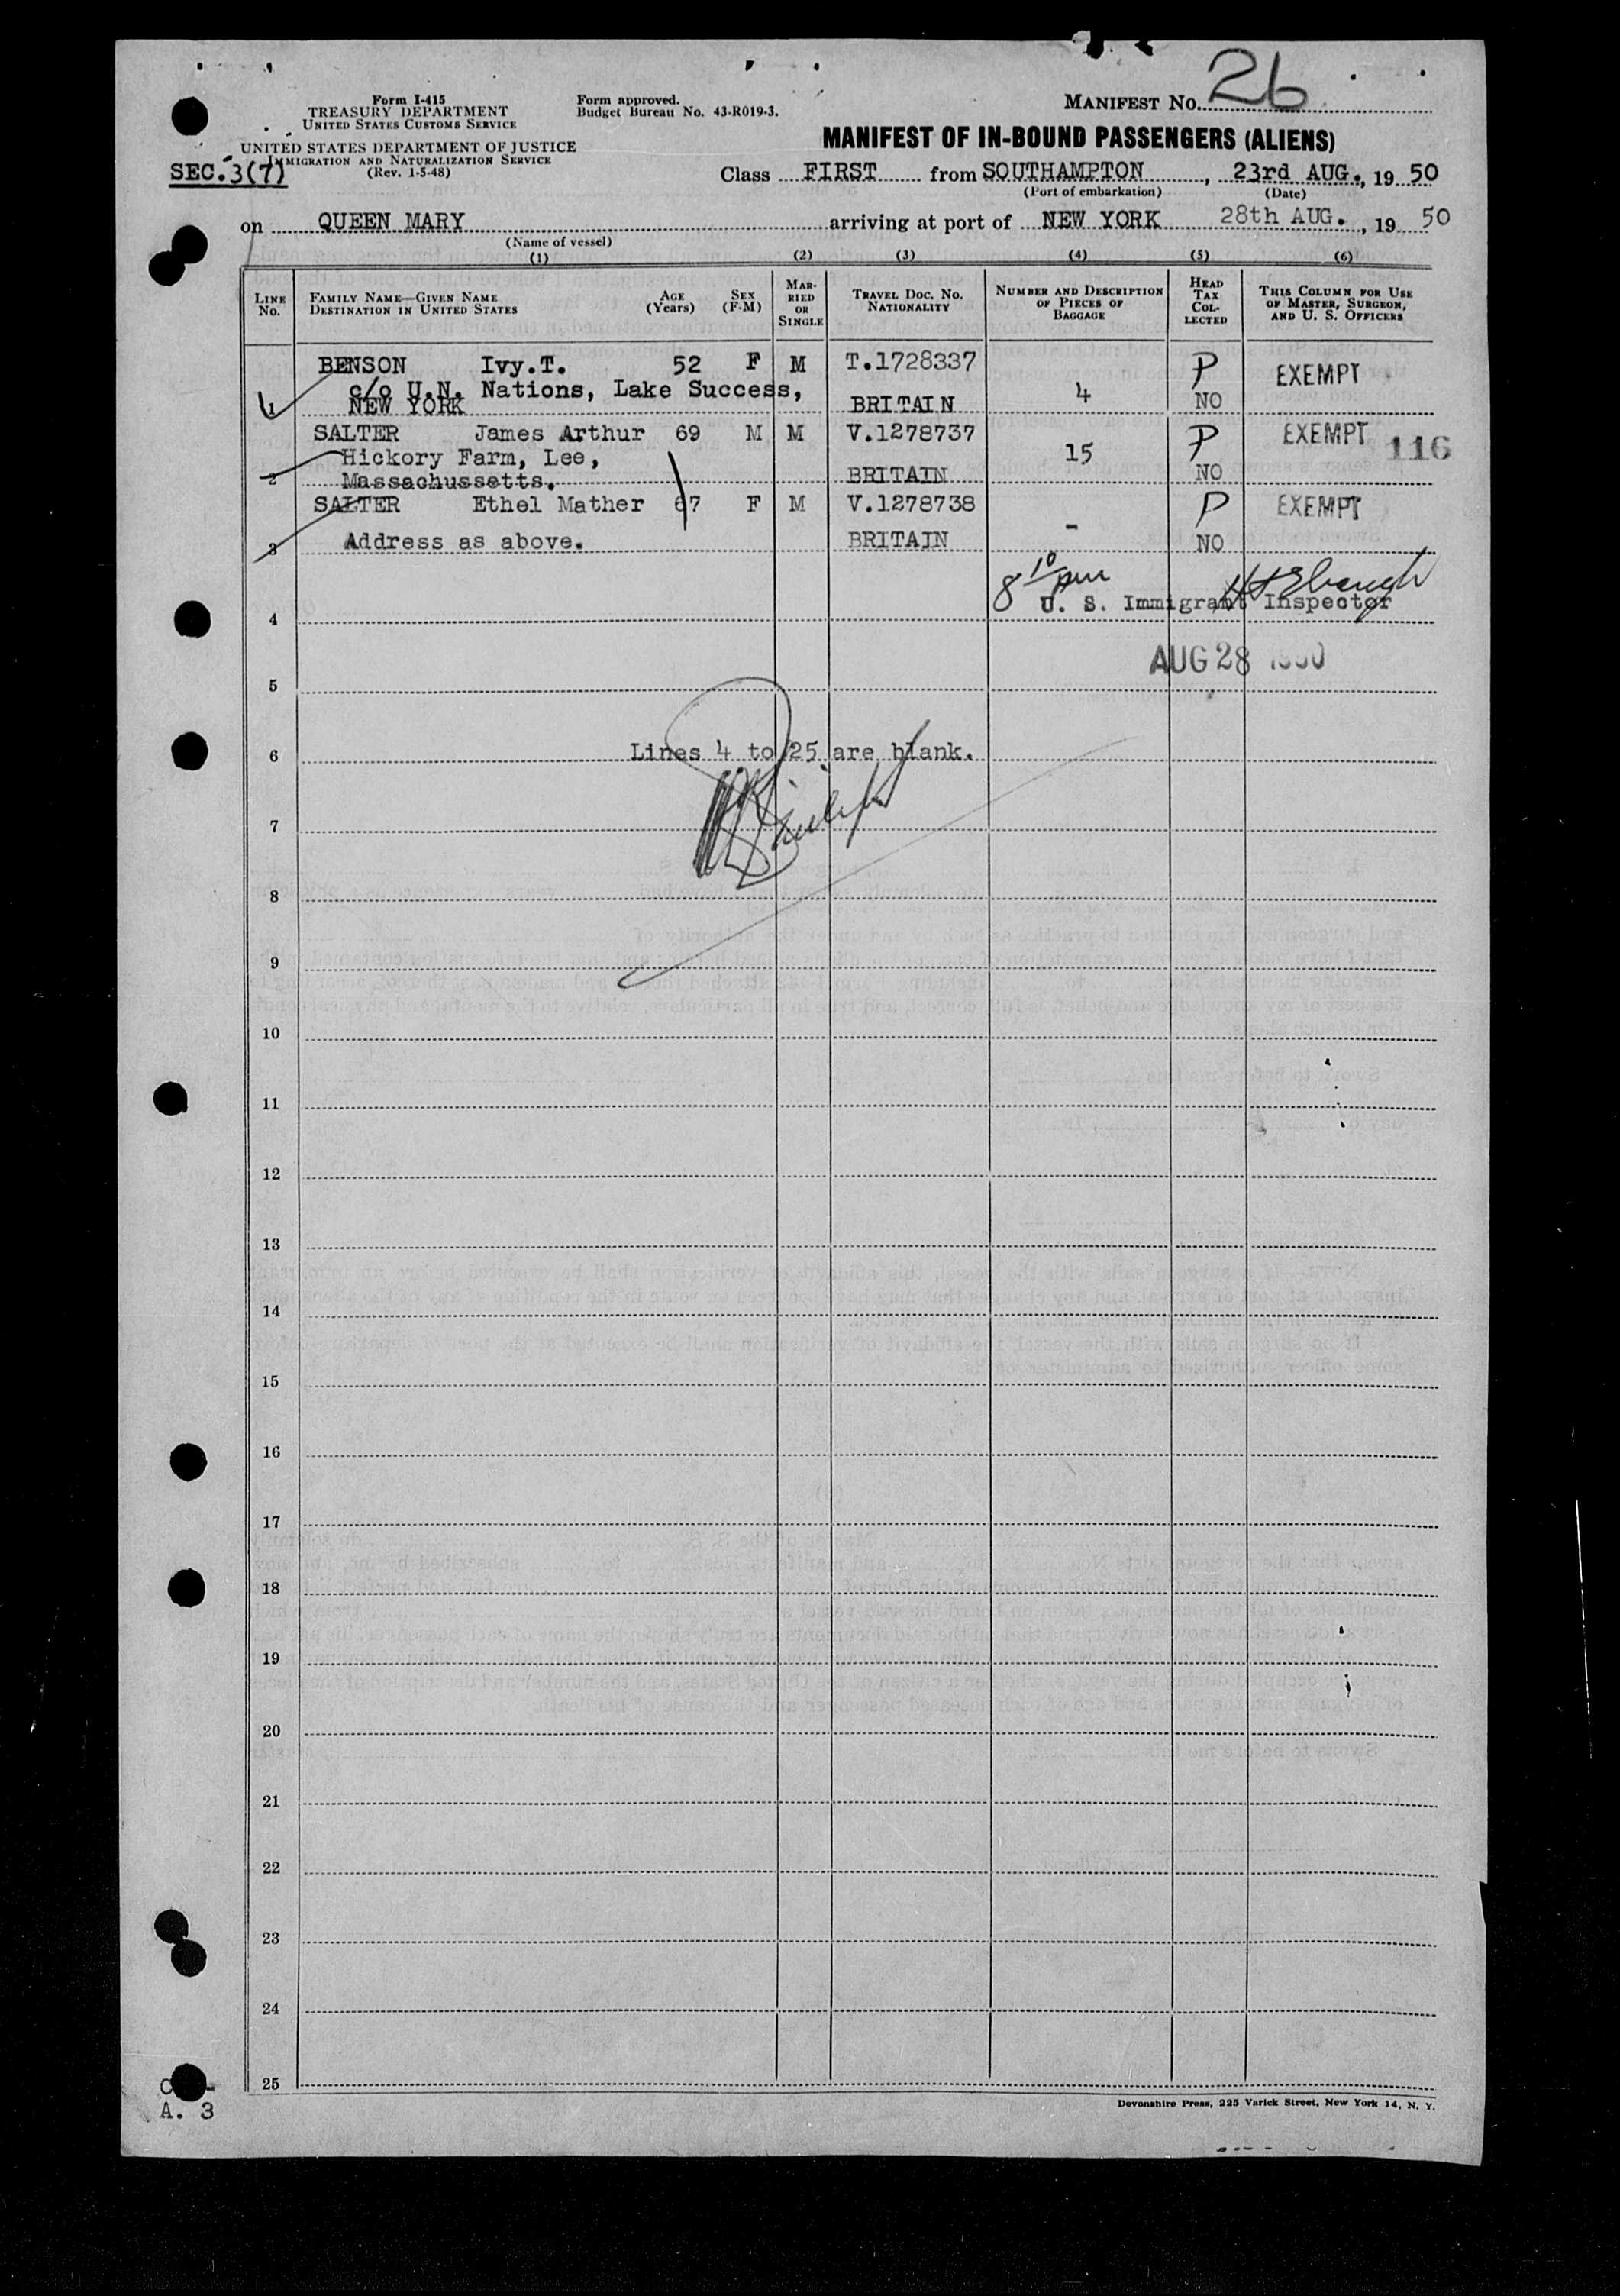 Form I-415
TREASURY DEPARTMENT
UNITED STATES CUSTOMS SERVICE
UNITED STATES DEPARTMENT OF JUSTICE
IMMIGRATION AND NATURALIZATION SERVICE
(Rev. 1-5-48)
SEC.3(7)
Form approved.
Budget Bureau No. 43-R019-3.
MANIFEST No. 26
MANIFEST OF IN-BOUND PASSENGERS (ALIENS)
Class FIRST from SOUTHAMPTON, 23rd AUG., 19 50
(Port of embarkation) (Date)
on QUEEN MARY arriving at port of NEW YORK 28th AUG., 19 50
(Name of vessel)
(1) (2) (3) (4) (5) (6)
LINE No.
FAMILY NAME—GIVEN NAME
DESTINATION IN UNITED STATES
AGE (Years)
SEX (F-M)
MARRIED OR SINGLE
TRAVEL DOC. NO. NATIONALITY
NUMBER AND DESCRIPTION OF PIECES OF BAGGAGE
HEAD TAX COLLECTED
THIS COLUMN FOR USE OF MASTER, SURGEON, AND U. S. OFFICERS
BENSON Ivy.T. 52 F M T.1728337 P EXEMPT
c/o U.N. Nations, Lake Success, 4
1 NEW YORK BRITAIN NO
SALTER James Arthur 69 M M V.1278737 P EXEMPT 116
Hickory Farm, Lee, 15
2 Massachussetts. BRITAIN NO
SALTER Ethel Mather 67 F M V.1278738 P EXEMPT
-
3 Address as above. BRITAIN NO
8 10 pm
U. S. Immigrant Inspector
4
AUG 28 1950
5
6 Lines 4 to 25 are blank.
7
8
9
10
11
12
13
14
15
16
17
18
19
20
21
22
23
24
25
A. 3
Devonshire Press, 225 Varick Street, New York 14, N. Y.